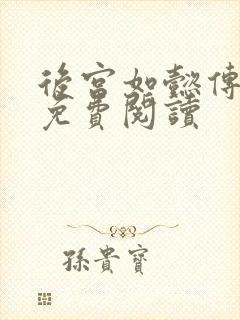 後宮如懿傳
免費閱讀
孫貴寶